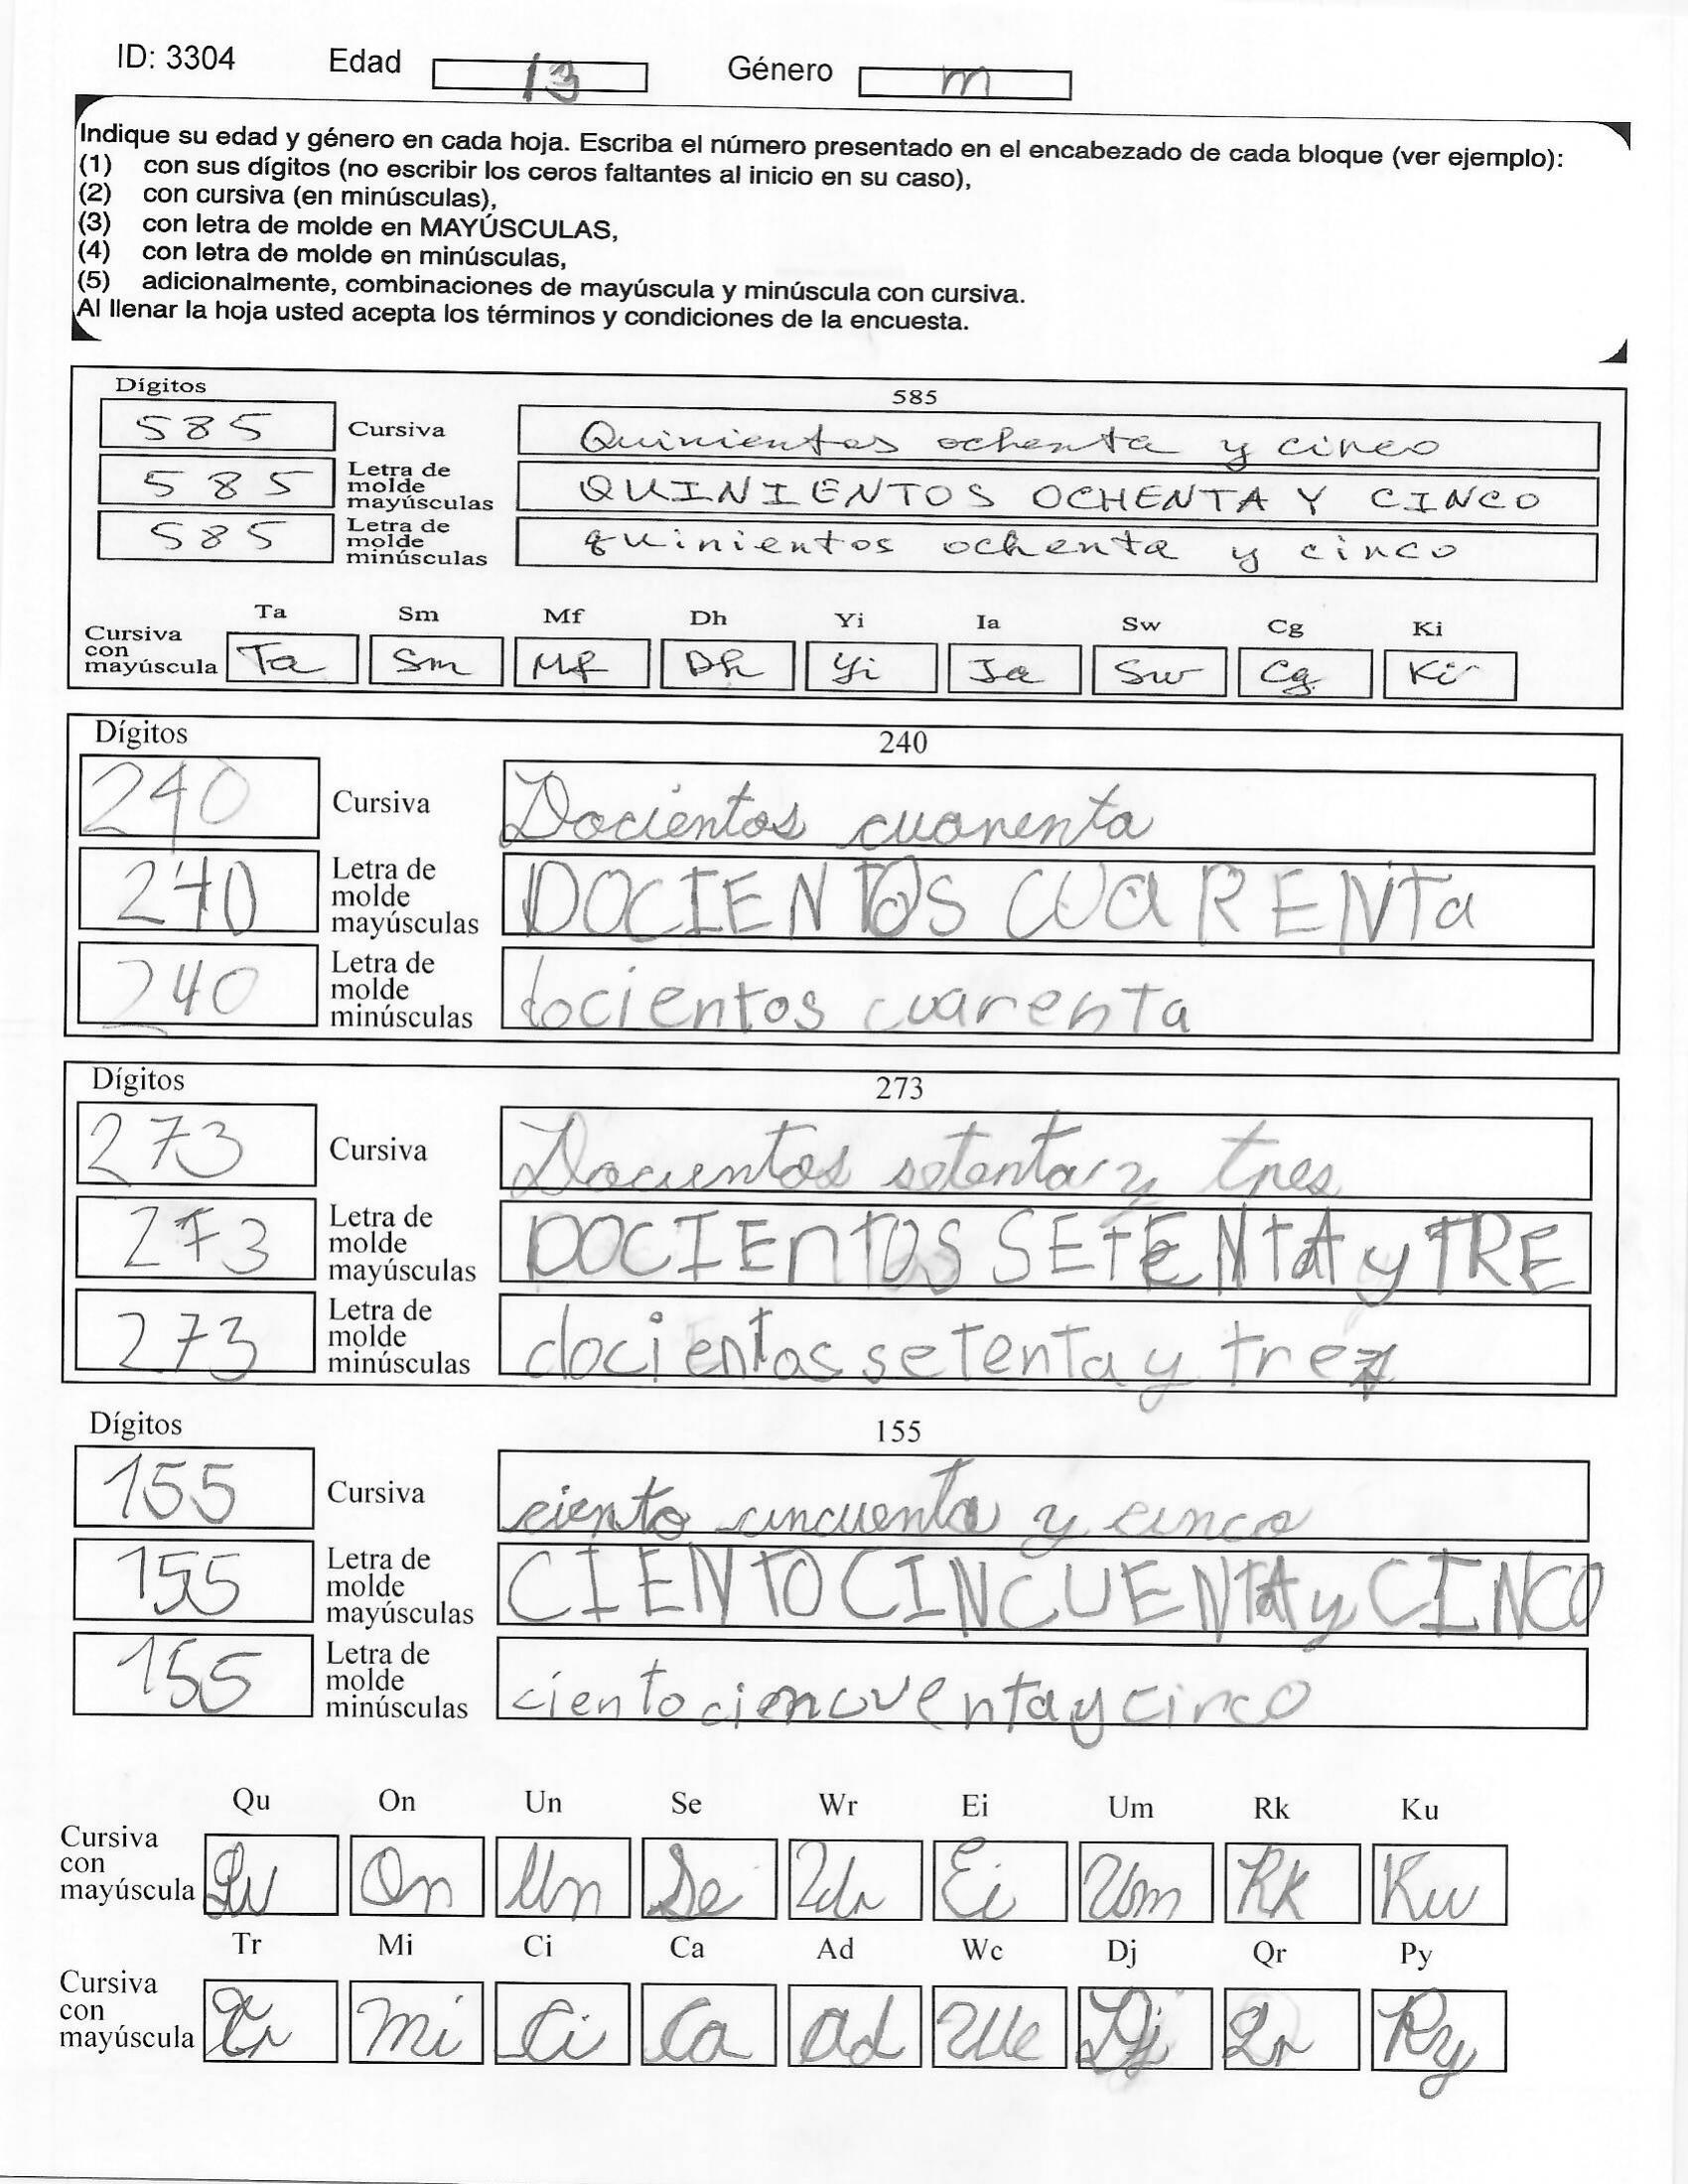 ID: 3304 Edad 13 Género m
Indique su edad y género en cada hoja. Escriba el número presentado en el encabezado de cada bloque (ver ejemplo):
(1) con sus dígitos (no escribir los ceros faltantes al inicio en su caso),
(2) con cursiva (en minúsculas),
(3) con letra de molde en MAYÚSCULAS,
(4) con letra de molde en minúsculas,
(5) adicionalmente, combinaciones de mayúscula y minúscula con cursiva.
Al llenar la hoja usted acepta los términos y condiciones de la encuesta.
Dígitos 585
585 Cursiva Quinientos ochenta y cinco
585 Letra de molde mayúsculas QUINIENTOS OCHENTA Y CINCO
585 Letra de molde minúsculas quinientos ochenta y cinco
Ta Sm Mf Dh Yi Ia Sw Cg Ki
Cursiva con mayúscula Ta Sm Mf Dh Yi Ia Sw Cg Ki
Dígitos 240
240 Cursiva Docientos cuarenta
240 Letra de molde mayúsculas DOCIENTOS CUaRENTa
240 Letra de molde minúsculas docientos cuarenta
Dígitos 273
273 Cursiva Docientos setenta y tres
273 Letra de molde mayúsculas DOCIEnTOS SETENTA y TRE
273 Letra de molde minúsculas docientos setenta y trez
Dígitos 155
155 Cursiva ciento cincuenta y cinco
155 Letra de molde mayúsculas CIENTO CINCUENTA y CINCO
155 Letra de molde minúsculas ciento ciencuenta y cinco
Qu On Un Se Wr Ei Um Rk Ku
Cursiva con mayúscula Qu On Un Se Wr Ei Um Rk Ku
Tr Mi Ci Ca Ad Wc Dj Qr Py
Cursiva con mayúscula Tr Mi Ci Ca Ad Wc Dj Qr Py